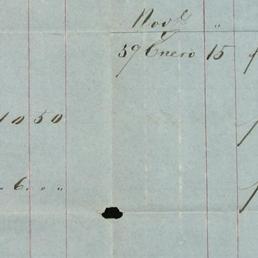 Novᵉ "
59 Enero 15
1050
6 " "